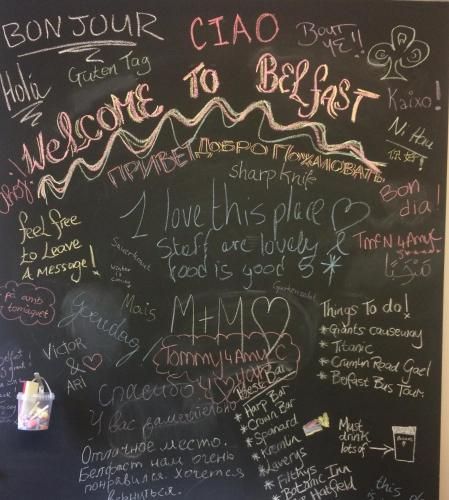 BONJOUR
CIAO
BOUT
YE!!
Hola
Guten Tag
Kaixo!
WELCOME TO BELFAST
Ni Hau
ПРИВЕТ ДОБРО ПОЖАЛОВАТЬ
sharp knife
Bon
dia!
feel free
to Leave
A message!
I love this place
Staff are lovely &
food is good 5*
Sauerkraut
winter is
coming
TMFN4AMYC
pa amb
tomaguet
Goeiedag
Mais
M+M
VICTOR
&
ARI
Tommy4AmyC
Things To do!
* Giants causeway
* Titanic
* Crumlin Road Gael
* Belfast Bus Tour.
Best Bar
* Harp Bar
* Crown Bar
* Spaniard
* Kremlin
* Laverys
* Filthys
* Botanic Inn
Спасибо
У вас замечательно
Отличное место.
Белфаст нам очень
понравился. Хочется
вернуться.
Must
drink
lots of
this